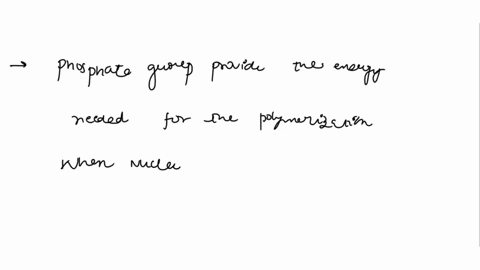 → phosphate group provide the energy
needed for the polymerization
when nucleo